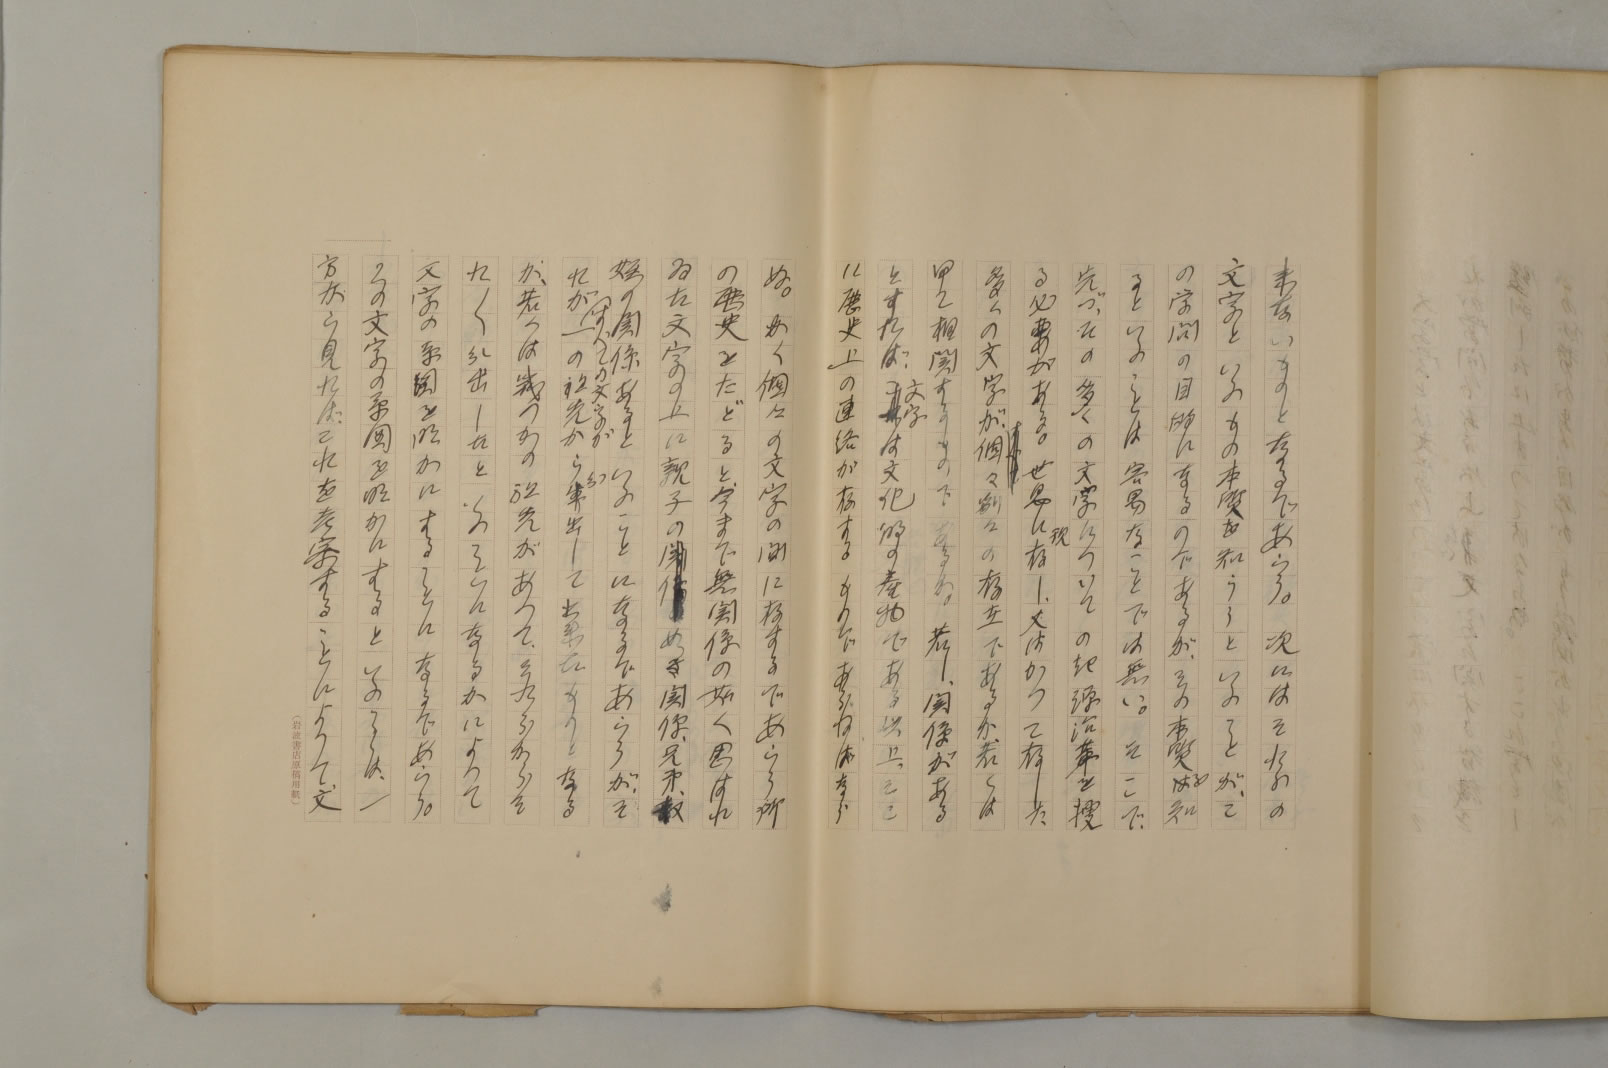 来ないものとなるであらう。次にはそれらの
文字といふもの本質を知らうといふことが、こ
の学問の目的になるのであるが、その本質を知
るといふことは容易なことでは無い。そこで、
先づ、その多くの文字についての起源沿革を捜
る必要がある。世界に現存し、又はかつて存した
多くの文字が、個々別々の存立であるか、若くは
甲乙相関するものであるか。若し、関係がある
とすれば、文字は文化的の産物である以上、ここ
に歴史上の連絡が存するものであらねばなら
ぬ。かく個々の文字の間に存するであらう所
の歴史をたどると、今まで無関係の如く思はれ
ゐた文字の上に親子の関係めき関係、兄弟、
の関係あるといふことになるであらうが、そ
れがすべての文字が一の祖先から分出して出来たものとなる
か、若くは幾つかの祖先があつて、それらからそ
れ〱分出したといふことになるかによつて
文字の系図を明かにすることになるであらう。
この文字の系図を明かにするといふことは、一
方から見れば、これを考案することによつて、文
(岩波書店原稿用紙)